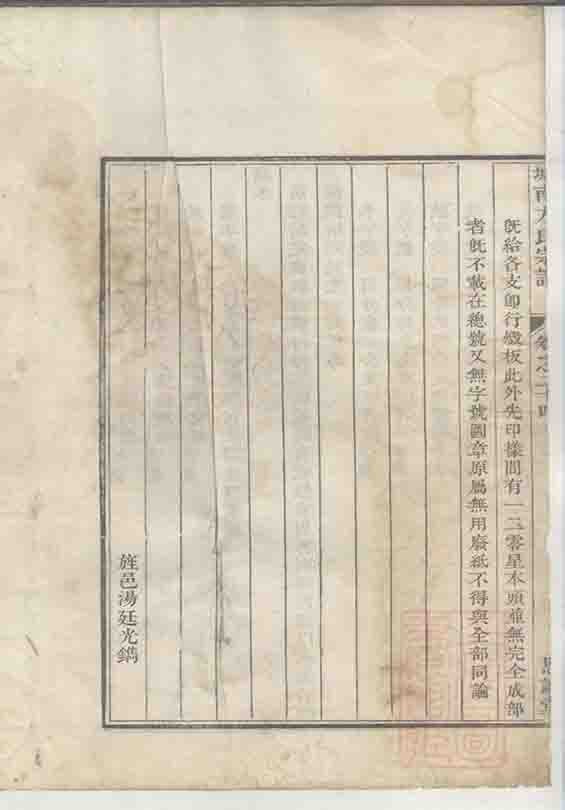 城南方氏宗譜 卷之二十四
既給各支即行燬板此外先印樣間有一二零星本頭並無完全成部
者旣不載在總號又無字號圖章原屬無用廢紙不得與全部同論
旌邑湯廷光鐫